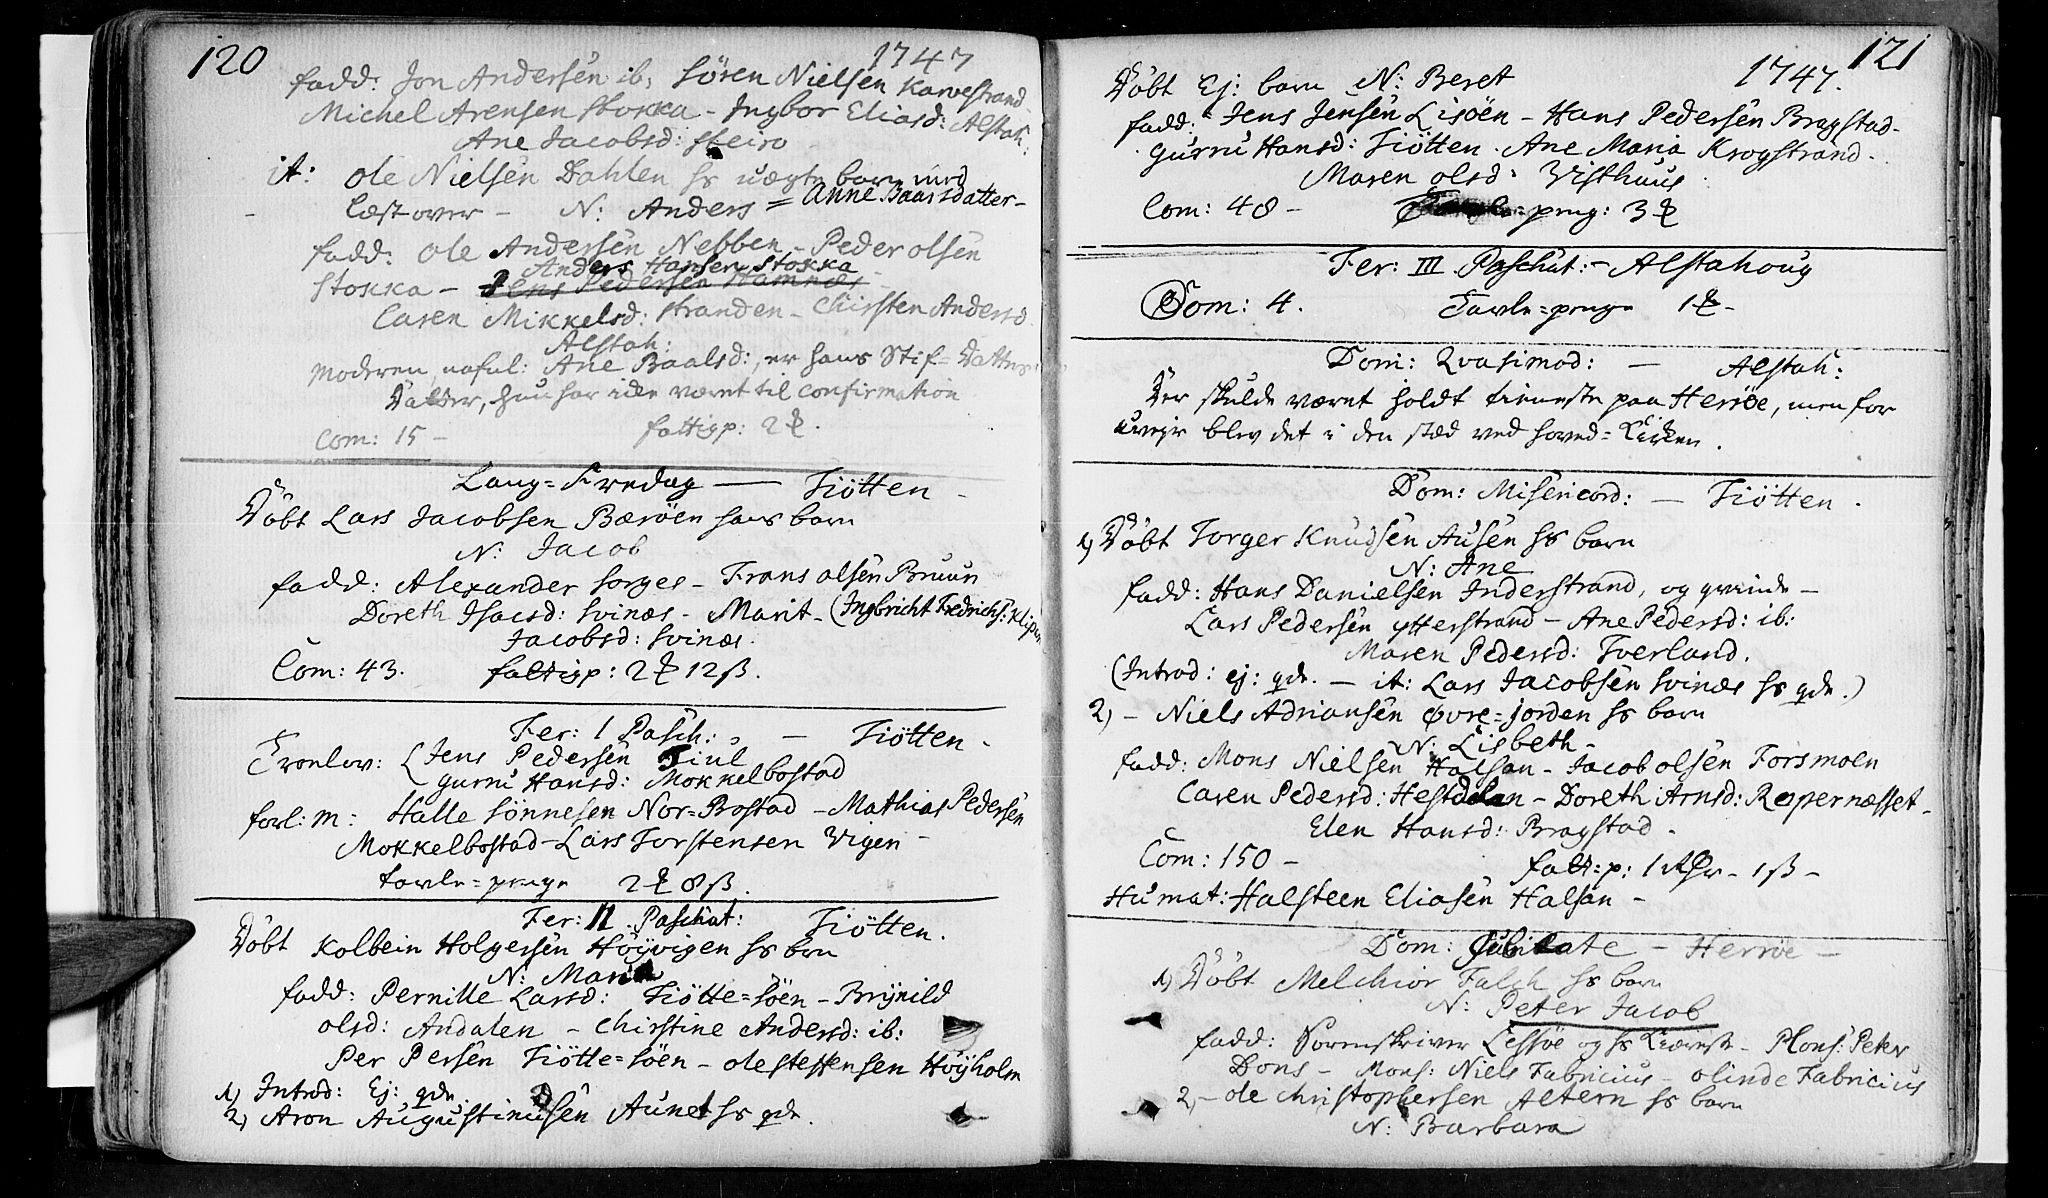 120
1747
fadd: Jon Andersen ib: Sören Nielsen Karvestrand
Michel Arensen Stokka - Ingbor Eliasd: Alstah:
Ane Jacobsd: Steiro
it: Ole Nielsen Dahlen hs uægte barn med
Anne Baarsdatter -
læst over - N: Anders =
fadd: Ole Andersen Nebben - Peder Olsen
Anders Hansen Stokka
Stokka - Jens Pedersen Hamnæs -
Caren Mikkelsd: Stranden - Chirsten Andersd
Alstah:
Moderen, nafnl: Ane Baalsd:, er hans Stif-Datters
Datter, hun har icke været til confirmation
Com: 15 - fattigp: 2 ₻.
Lang-Fredag — Tiötten -
Döbt Lars Jacobsen Bæröen hans barn
N: Jacob
fadd: Alexander Sorges - Frans Olsen Bruun
Doreth Isacsd: Svinæs - Marit - (Ingbricht Fredrichs: Klipen
Jacobsd: Svinæs.
Com: 43. fattigp: 2 ₻ 12 β.
Fer: 1 Pasch: - Tiötten -
Trolov: (Jens Pedersen Tiul
Gurru Hansd: Mokkelbostad
forl: m: Halle Sönnesen Nor-Bostad - Mathias Pedersen
Mokkelbostad - Lars Torstensen Vigen -
tavle-penge 2 ₻ 8 β.
Fer: II Paschat: Tiötten.
Döbt Kolbein Holgersen Höyvigen hs brn
N: Maria
fadd: Pernille Larsd: Tiötte-söen - Brynild
Olsd: Andalen - Chirstine Andersd: ib:
Per Persen Tiötte-söen - Ole Steffensen Höyholm
1) Introd: Ej: qde.
2) Aron Augustinusen Aunet hs qde.
121
1747.
Döbt Ej: barn N: Beret
fadd: Jens Jensen Lisöen - Hans Pedersen Bragstad -
Gurru Hansd: Tiötten - Ane Maria Krogstrand.
Maren Olsd: Visthuus
Com: 48 - peng: 3 ₻
Fer: III Paschat: - Alstahoug
Com: 4. Tavle-penge 1 ₻ -
Dom: Qvasimod: — Alstah:
Der skulde været holdt tieneste paa Herröe, men for
uvejr blev det i den stæd ved hoved-Kirken.
Dom: Misericord: — Tiötten.
1) Döbt Torger Knudsen Ausen hs barn
N: Ane
fadd: Hans Danielsen Inderstrand, og qvinde -
Lars Pedersen Ytterstrand - Ane Pedersd: ib:
Maren Pedersd: Tverland.
(Introd: ej: qde. - it: Lars Jacobsen Svinæs hs qde.)
2) - Niels Adriansen Øvre-jorden hs barn
N: Lisbeth -
fadd: Mons Nielsen Halsan - Jacob Olsen Forsmoen
Caren Pedersd: Hestdalen - Doreth Arnsd: Repernæsset -
Elen Hansd: Bragstad.
Com: 150 - fatt: p: 1 Rdlr - 1 β -
Humat: Halsteen Eliasen Halsan -
Dom: Jubilate - Herröe -
1) Döbt Melchior Falch hs barn
N: Peter Jacob
fadd: Sorenskriver Lessöe og hs Kiæreste - Mons: Peter
Dons - Mons: Niels Fabricius - Olinde Fabricius
2) - Ole Christophersen Altern hs barn
N: Barbara